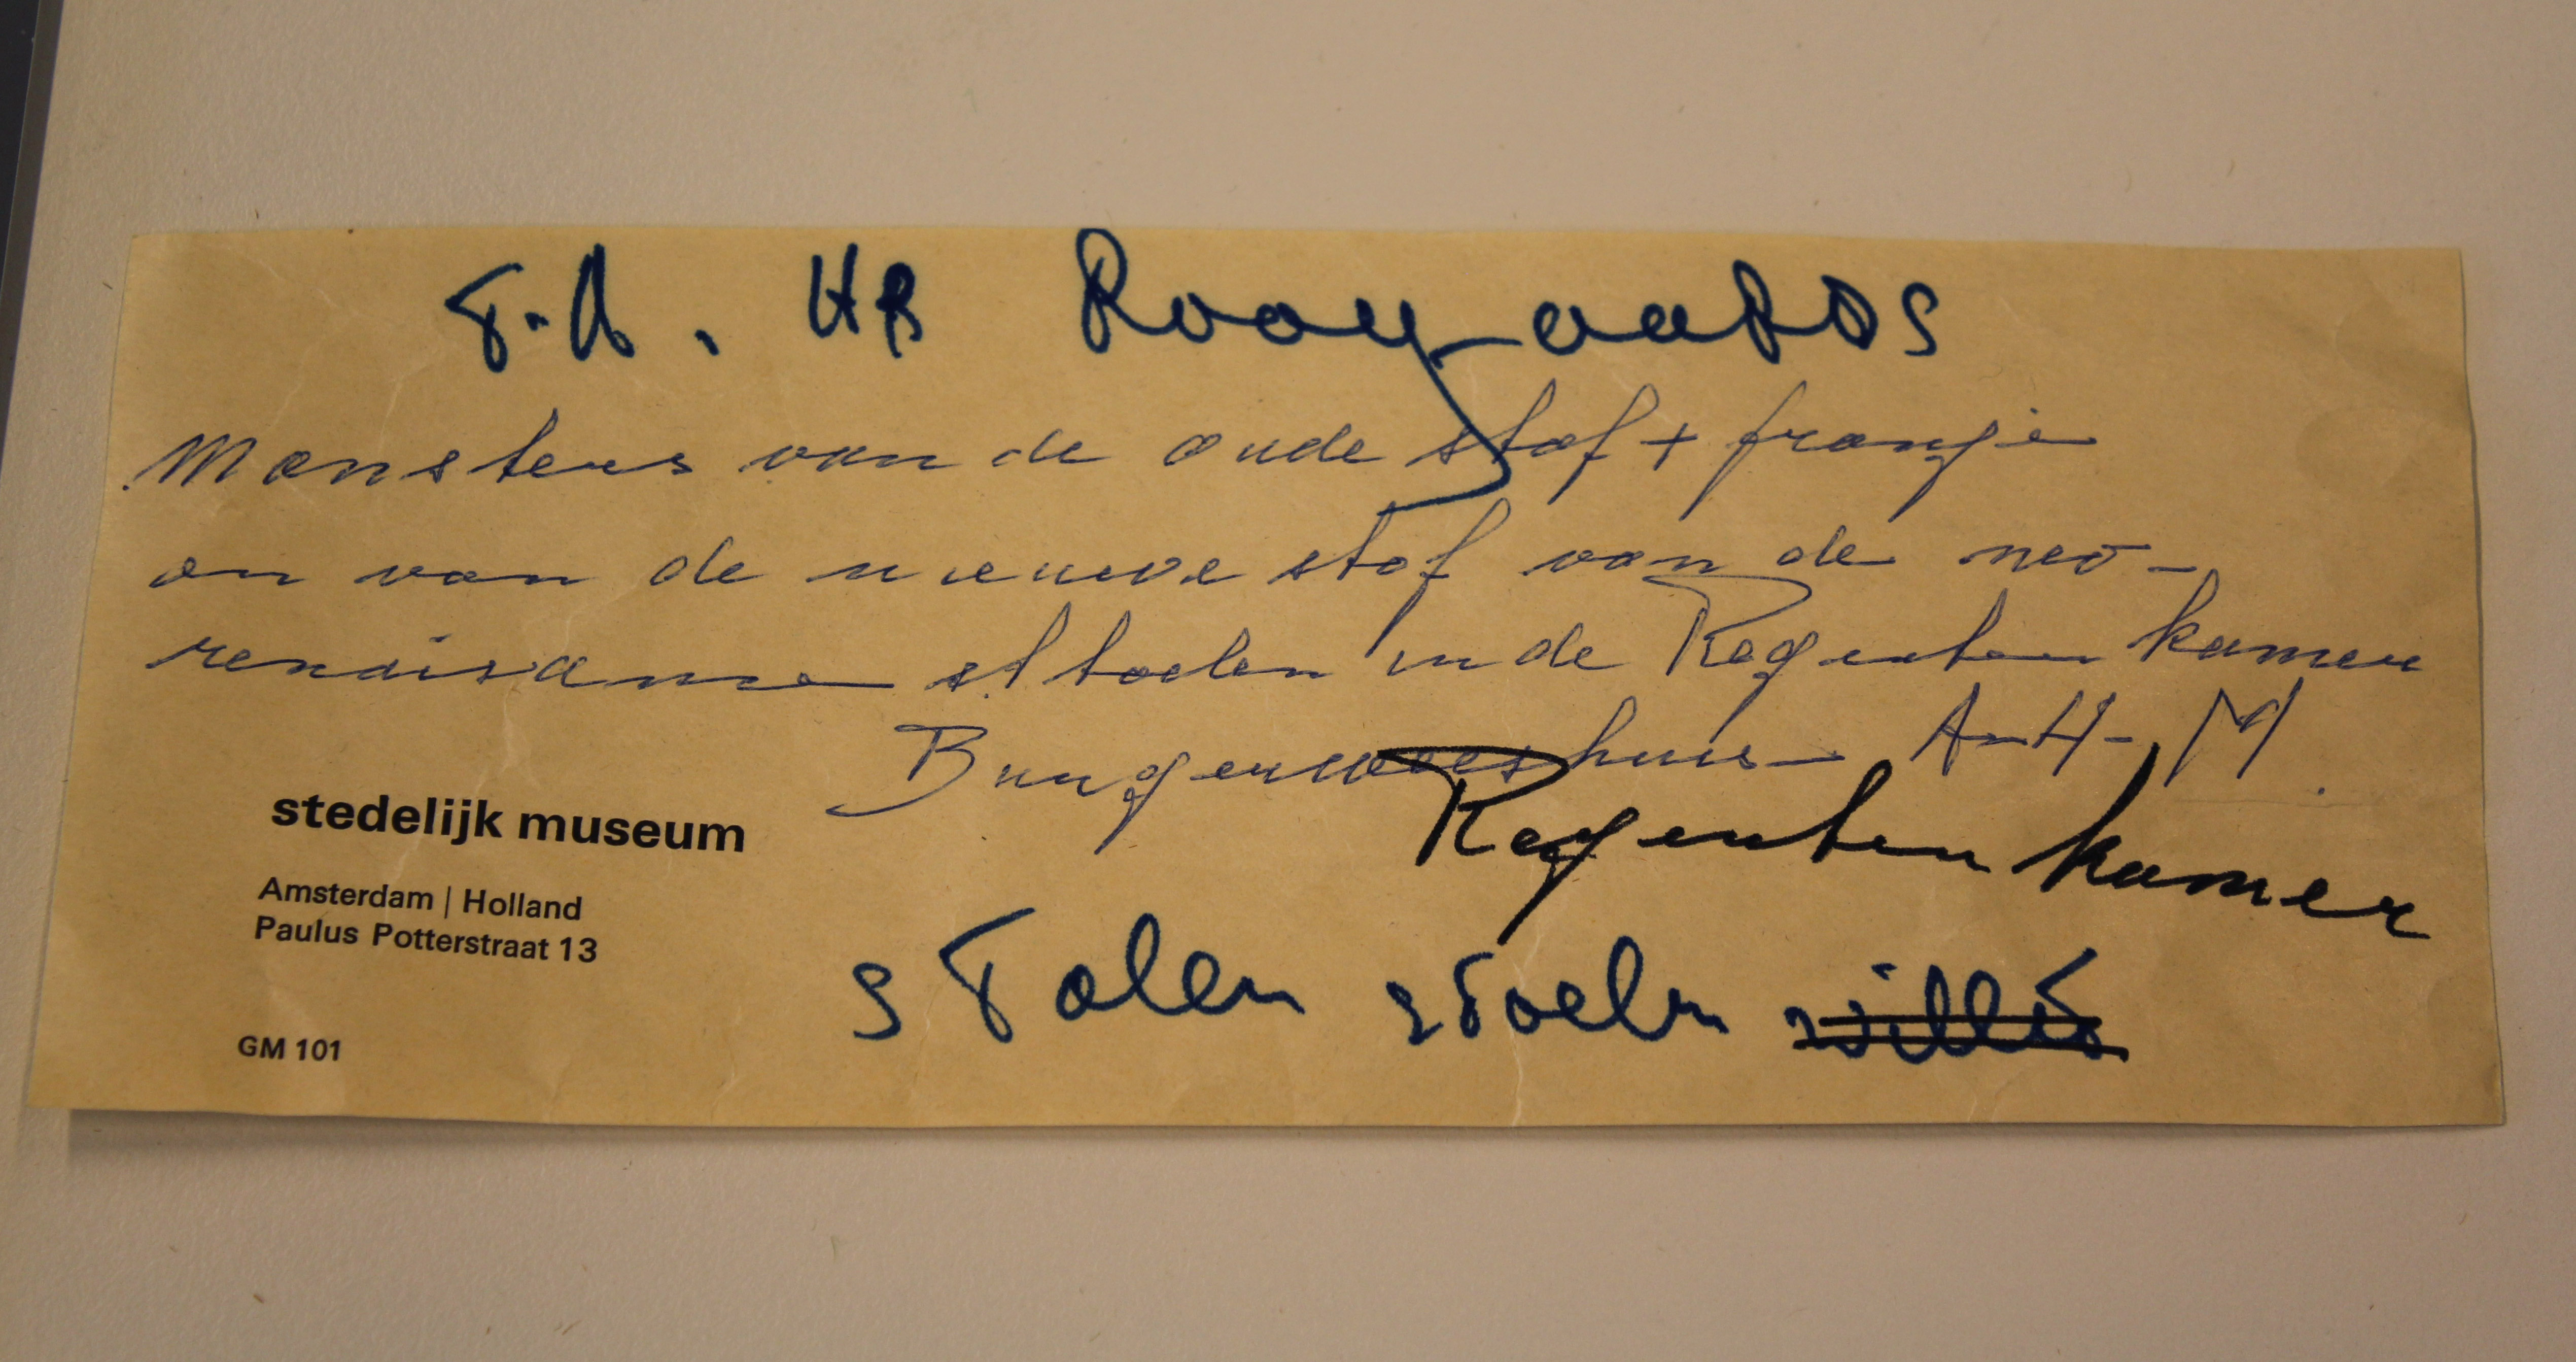 T.A. HR Rooyaards
Monsters van de oude stof + franje
en van de nieuwe stof van de neo-
renaissance sttoelen in de Regentenkamer
Burgerweeshuis - A-H-M.
Regentenkamer
stalen stoelen
stedelijk museum
Amsterdam | Holland
Paulus Potterstraat 13
GM 101